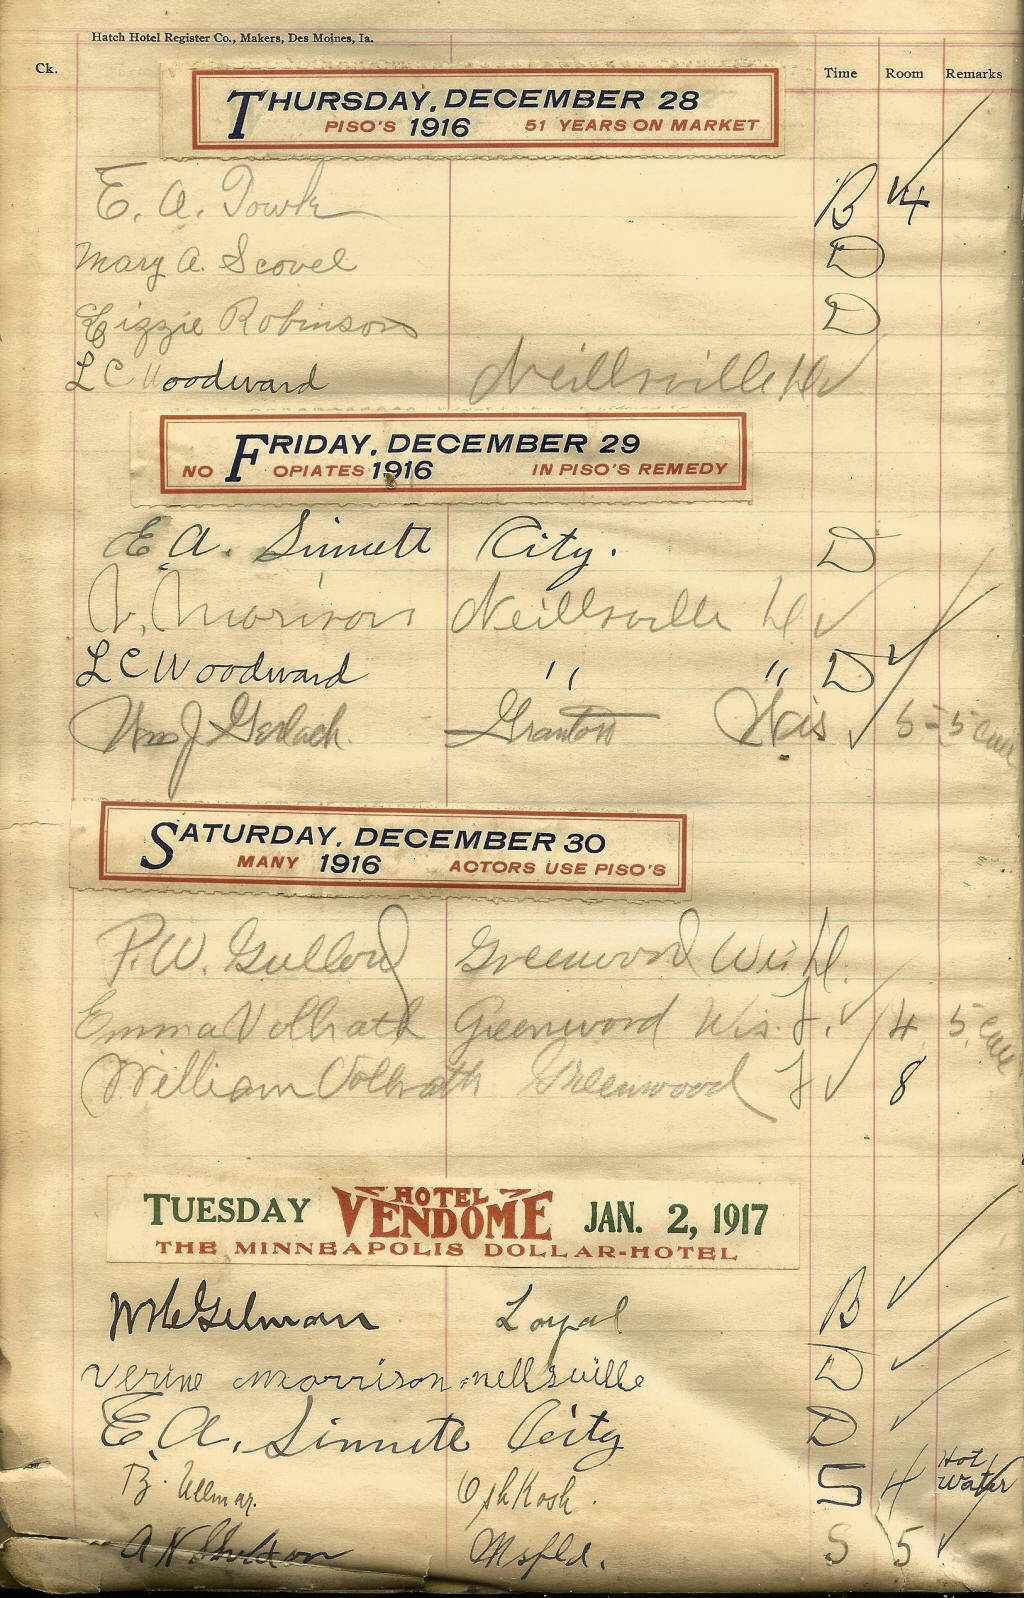 Hatch Hotel Register Co., Makers, Des Moines, Ia.
Ck. Time Room Remarks
THURSDAY, DECEMBER 28
PISO'S 1916 51 YEARS ON MARKET
E. A. B 4
Mary A. Scovel D
Lizzie Robinson D
L C Woodward Neillsville
FRIDAY, DECEMBER 29
NO OPIATES 1916 IN PISO'S REMEDY
E. A. Sinnett City. D
Morrison Neillsville
L C Woodward " " D
Wm J Gerlach. Granton Wis 5-5
SATURDAY, DECEMBER 30
MANY 1916 ACTORS USE PISO'S
P. W. Gullord Greenwood Wis
Emma Vollrath Greenwood Wis. 4 5
William Vollrath Greenwood 8
TUESDAY HOTEL VENDOME JAN. 2, 1917
THE MINNEAPOLIS DOLLAR-HOTEL
Gilman Loyal B
Verine Morrison nellsville D
E. A. Sinnett City D
B. Ullmar. OshKosh. S 4 Hot Water
A N Sheldon Msfld. S 5